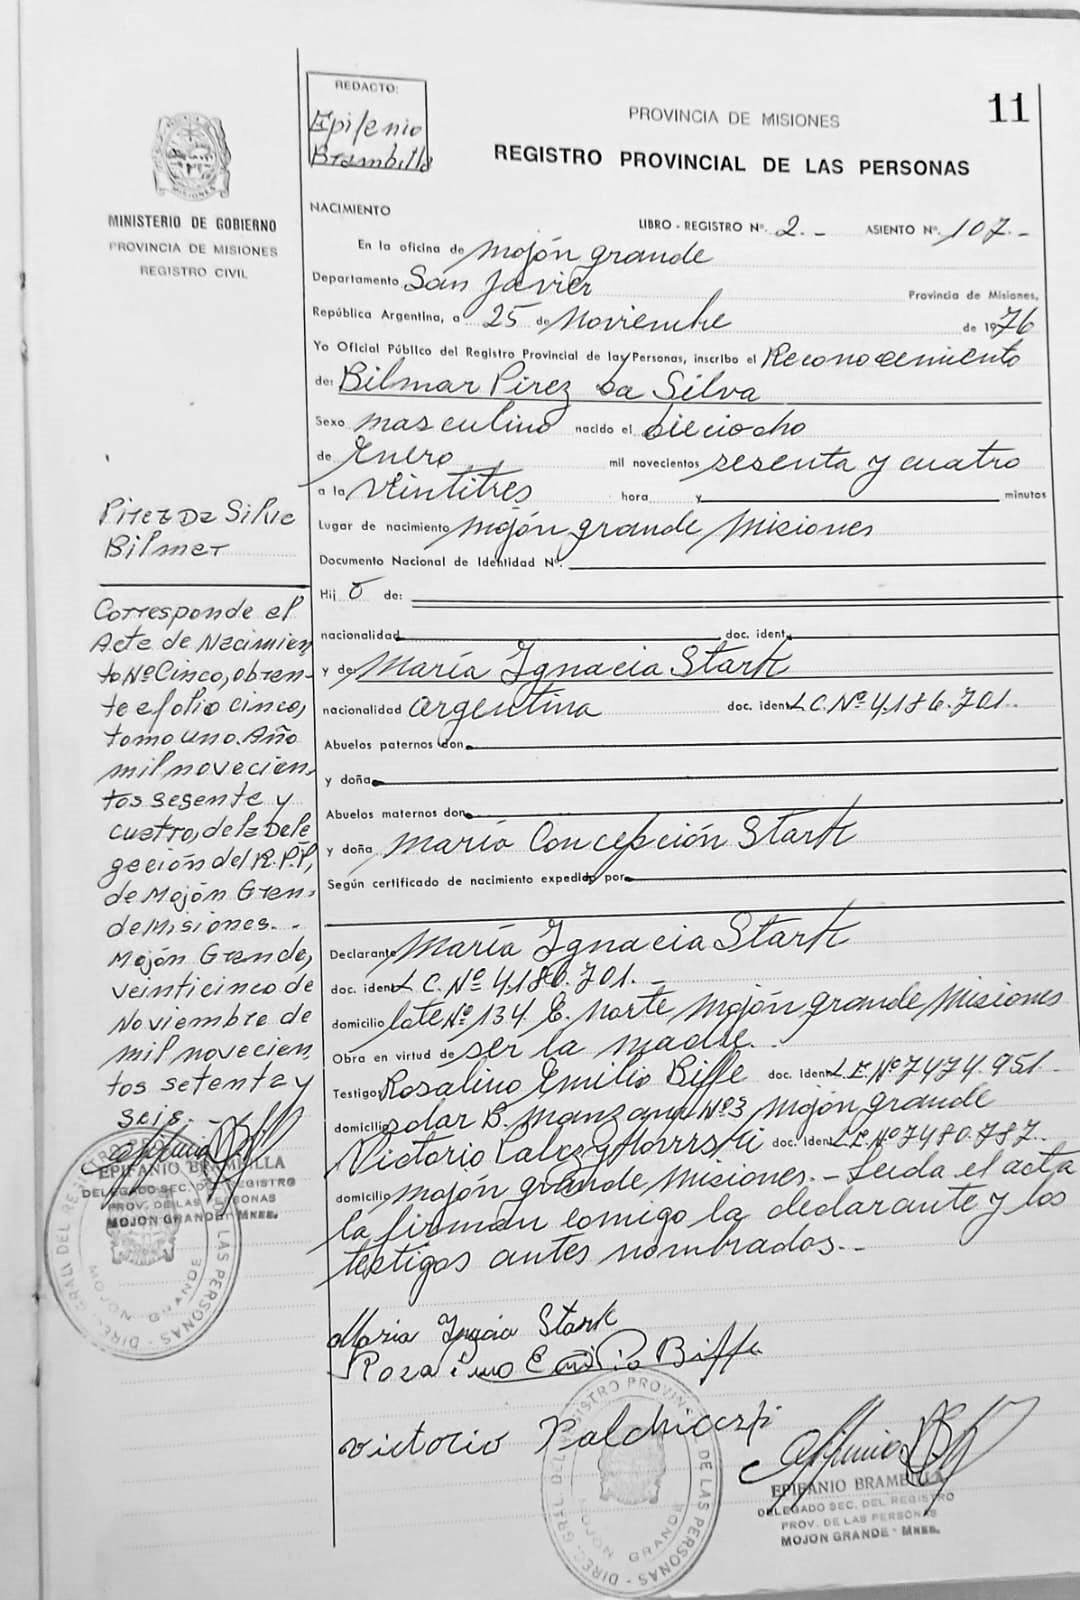 REDACTO:
Epifenio
Brambilla
PROVINCIA DE MISIONES
11
REGISTRO PROVINCIAL DE LAS PERSONAS
MINISTERIO DE GOBIERNO
PROVINCIA DE MISIONES
REGISTRO CIVIL
NACIMIENTO
LIBRO - REGISTRO Nº. 2.- ASIENTO Nº. 107.-
En la oficina de Mojón grande
Departamento San Javier Provincia de Misiones,
República Argentina, a 25 de Noviembre de 1976
Yo Oficial Público del Registro Provincial de las Personas, inscribo el Reconocemiento
de: Bilmar Pirez Da Silva
Sexo masculino nacido el dieciocho
de Enero mil novecientos sesenta y cuatro
a la veintitres hora y minutos
Lugar de nacimiento Mojón grande Misiones
Documento Nacional de Identidad Nº.
Hij o de:
nacionalidad doc. ident.
y de María Ignacia Stark
nacionalidad argentina doc. ident. L.C. Nº 4.186.701..
Abuelos paternos don
y doña
Abuelos maternos don
y doña María Concepción Stark
Según certificado de nacimiento expedido por
Declarante María Ignacia Stark
doc. ident. L.C. Nº 4.180.701.-
domicilio lote Nº 134 E. Norte Mojón grande Misiones
Obra en virtud de ser la madre.
Testigo Rosalino Emilio Biffe doc. ident. L.E. Nº 7474.951.
domicilio solar B. manzana Nº3 Mojón grande
Victorio doc. ident. L.E. Nº 7480.787..
domicilio Mojón grande Misiones.- Leida el acta
la firman comigo la declarante y los
testigos antes nombrados.-
Pirez Da Silva
Bilmar
Corresponde al
Acta de Nacimien
to Nº Cinco, obran-
te a folio cinco,
tomo uno. Año
mil novecien
tos sesenta y
cuatro, de la Dele
gación del R.P.P,
de Mojón Gran-
de Misiones..
Mojón Grande,
veinticinco de
Noviembre de
mil novecien
tos setenta y
seis.-
EPIFANIO BRAMBILLA
DELEGADO SEC. DEL REGISTRO
PROV. DE LAS PERSONAS
MOJON GRANDE - MNES.
DIREC. GRAL. DEL REGISTRO LAS PERSONAS
MOJON GRANDE
Maria Ignacia Stark
Rozalino Emilio Biffe
victorio
DIREC. GRAL. DEL REGISTRO PROVIN. DE LAS PERSONAS
MOJON GRANDE
EPIFANIO BRAMBILLA
DELEGADO SEC. DEL REGISTRO
PROV. DE LAS PERSONAS
MOJON GRANDE - MNES.